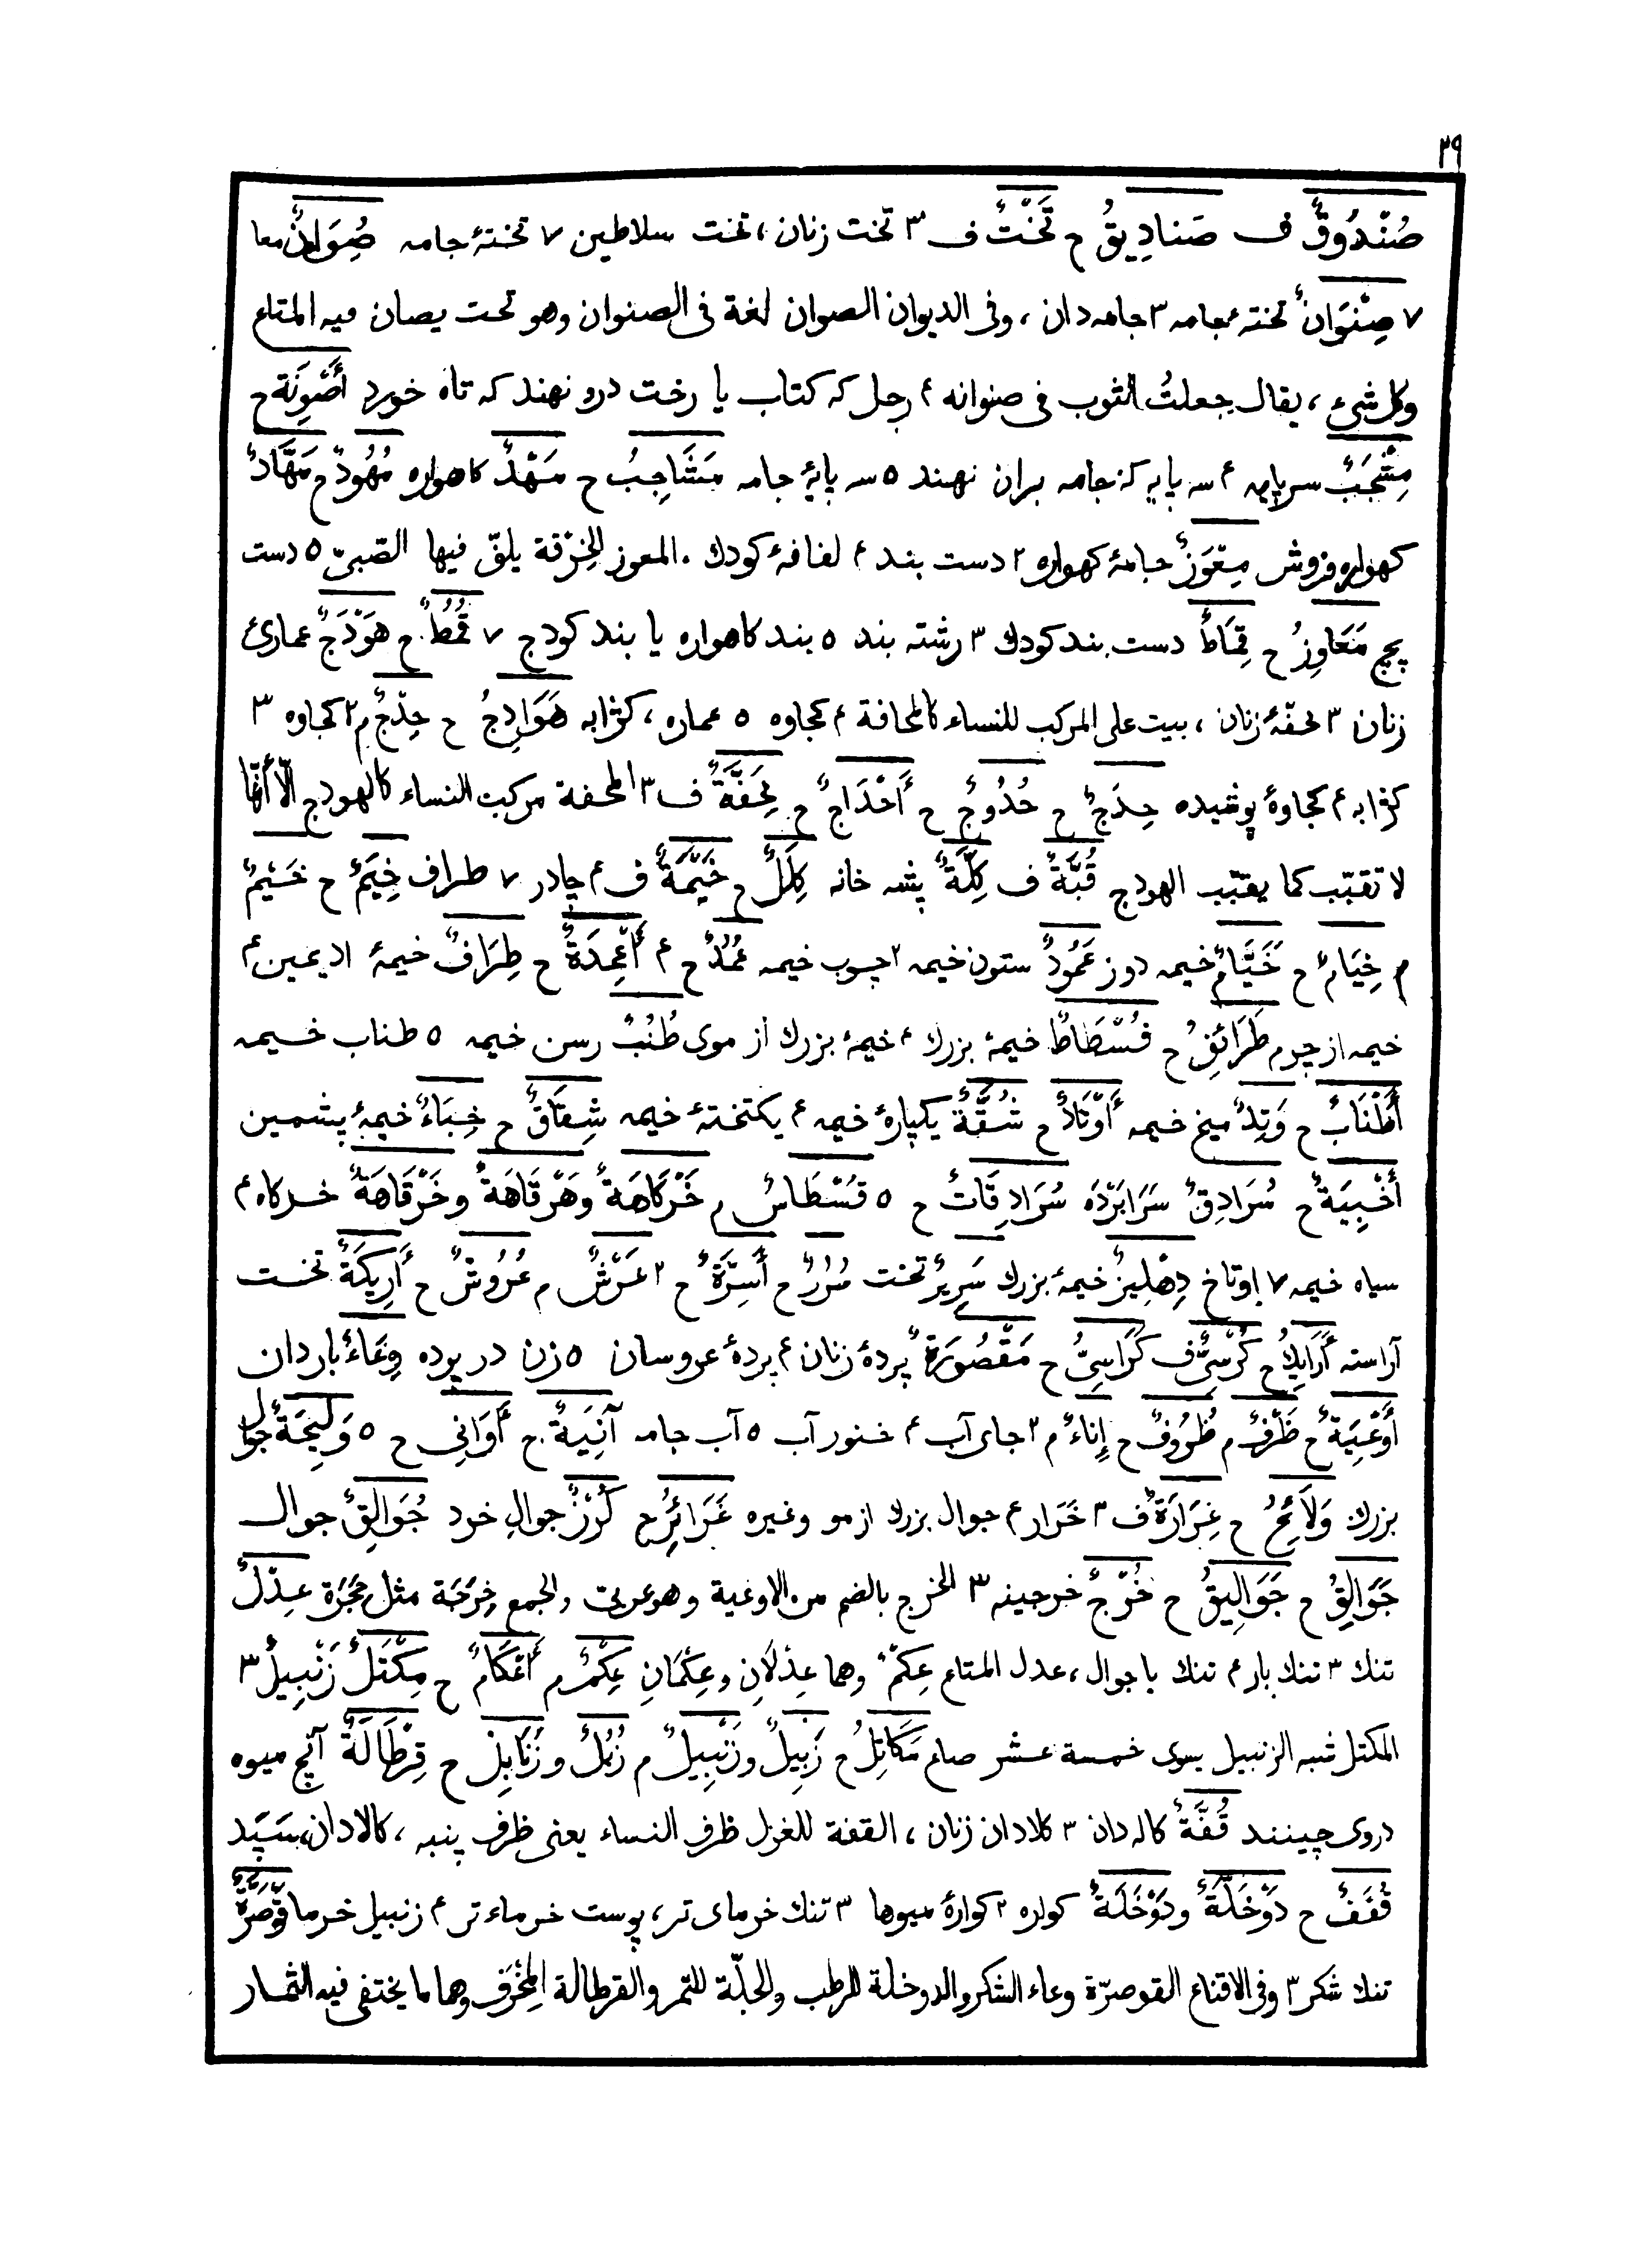 ٣٩
صُنْدُوقٌ ف صَنادِيقُ ح تَخْتٌ ف ٣ تخت زنان، تخت سلاطين ٧ تختهٔ جامه صُِوَانٌ معا
٧ صِنْوَانٌ تختهٔ جامه ٣ جامه‌دان، وفى الديوان الصوان لغة فى الصنوان وهو تخت يصان فيه المتاع
وكل شىء، يقال جعلتُ الثوب فى صنوانه ۴ رحل كه كتاب يا رخت درو نهند كه تاه خورد أَصْوِنَة ح
مِشْجَبٌ سرپايه ۴ سه پايه كه جامه بران نهند ۵ سه پايهٔ جامه مَشَاجِبُ ح مَهْدٌ كاهواره مُهُودٌ ح مَهَّادٌ
كهواره فروش مِعْوَزٌ جامهٔ كهواره ٢ دست بند ۴ لفافهٔ كودك. المعوز الخِرْقة يلفّ فيها الصّبىّ ۵ دست
پيچ مَعَاوِزُ ح قِمَاطٌ دست بند كودك ٣ رشته بند ۵ بند كاهواره يا بند كودج ٧ قُمُطٌ ح هَوْدَجٌ عمارئ
زنان ٣ محفّهٔ زنان، بيت على المركب للنساء كالمحافة ۴ كجاوه ۵ عماره، كژابه هَوَادِجُ ح حِدْجٌ م ٢ كجاوه ٣
كژابه ۴ كجاوهٔ پوشيده حِدَجٌ ح حُدُوجٌ ح أَحْدَاجٌ ح مِحَفَّةٌ ف ٣ المحفة مركب النساء كالهودج الّا أنّها
لا تقبّب كما يقبّب الهودج قُبَّةٌ ف كِلَّةٌ پشه خانه كِلَلٌ ح خَيْمَةٌ ف ۴ چادر ٧ طراف خِيَمٌ ح خَيْمٌ
م خِيَامٌ ح خَيَّامٌ خيمه دوز عَمُودٌ ستون خيمه ٢ چوب خيمه عُمُدٌ ح ۴ أَعْمِدَةٌ ح طِرَافٌ خيمهٔ اديمين ۴
خيمه از چرم طَرَائِفُ ح فُسْطَاطٌ خيمهٔ بزرك ۴ خيمهٔ بزرك از موى طُنُبٌ رسن خيمه ۵ طناب خيمه
أَطْنَابٌ ح وَتِدٌ ميخ خيمه أَوْتَادٌ ح شُقَّةٌ يكپارهٔ خيمه ۴ يكتختهٔ خيمه شِقَاقٌ ح خِبَاءٌ خيمهٔ پشمين
أَخْبِيَةٌ ح سُرَادِقٌ سَرَابَرْدَه سُرَادِقَاتٌ ح ۵ فُسْطَاسٌ م خَرْكَاهَةٌ وهَرْقَاهَةٌ وخَرْقَاهَةٌ خركاه ۴
سياه خيمه ٧ اوتاخ دِهْلِيزٌ خيمهٔ بزرك سَرِيرٌ تخت سُرُرٌ ح أَسِرَّةٌ ح ٢ عَرْشٌ م عُرُوشٌ ح أَرِيكَةٌ تخت
آراسته أَرَايِكُ ح كُرْسِىٌّ ف كَرَاسِىُّ ح مَقْصُورَةٌ پردهٔ زنان ۴ پردهٔ عروسان ۵ زن در پرده وِعَاءٌ باردان
أَوْعِيَةٌ ح ظَرْفٌ م ظُرُوفٌ ح إِنَاءٌ م ٢ جاى آب ۴ خنور آب ۵ آب جامه آنِيَةٌ ح أَوَانِى ح ۵ وَلِيجَةٌ جوال
بزرك وَلَائِجُ ح غِرَارَةٌ ف ٣ خَرَار ۴ جوال بزرك از مو وغيره غَرَائِرُ ح كُرْزٌ جوالِ خرد جُوَالِقٌ جوال
جَوَالِقُ ح جَوَالِيقُ ح خُرْجٌ خرجينه ٣ الخرج بالضم من الاوعية وهو عربى والجمع خِرَجَة مثل جحَرَة عِدْلٌ
تنك ٣ تنك بار ۴ تنك با جوال، عدل المتاع عِكمٌ وهما عِدْلَانِ وعِكْمَانِ عِكْمٌ م أَعْكَامٌ ح مِكْتَلٌ زَنْبِيلٌ ٣
المكتل شبه الزنبيل يسوى خمسة عشر صاع مَكَاتِلُ ح زَبِيلٌ وزَنْبِيلٌ م زُبُلٌ وزَنَابِلُ ح قِرْطَالَةٌ آنچ ميوه
دروى چينند قُفَّةٌ كاله دان ٣ كلادان زنان، القفة للغزل ظرف النساء يعنى ظرف پنبه، كالادان، سَپَد
قُفَفٌ ح دَوْخَلَّةٌ ودَوْخَلَةٌ كواره ٢ كوارهٔ ميوها ٣ تنك خرماى تر، پوست خرماء تر ۴ زنبيل خرما قَوْصَرَّةٌ
تنك شكر ٣ وفى الاقناع القوصرّة وعاء الشكر والدوخلة للرطب والحلّة للتمر والقرطالة المِخْرَف وهما ما يختفى فيه الثمار